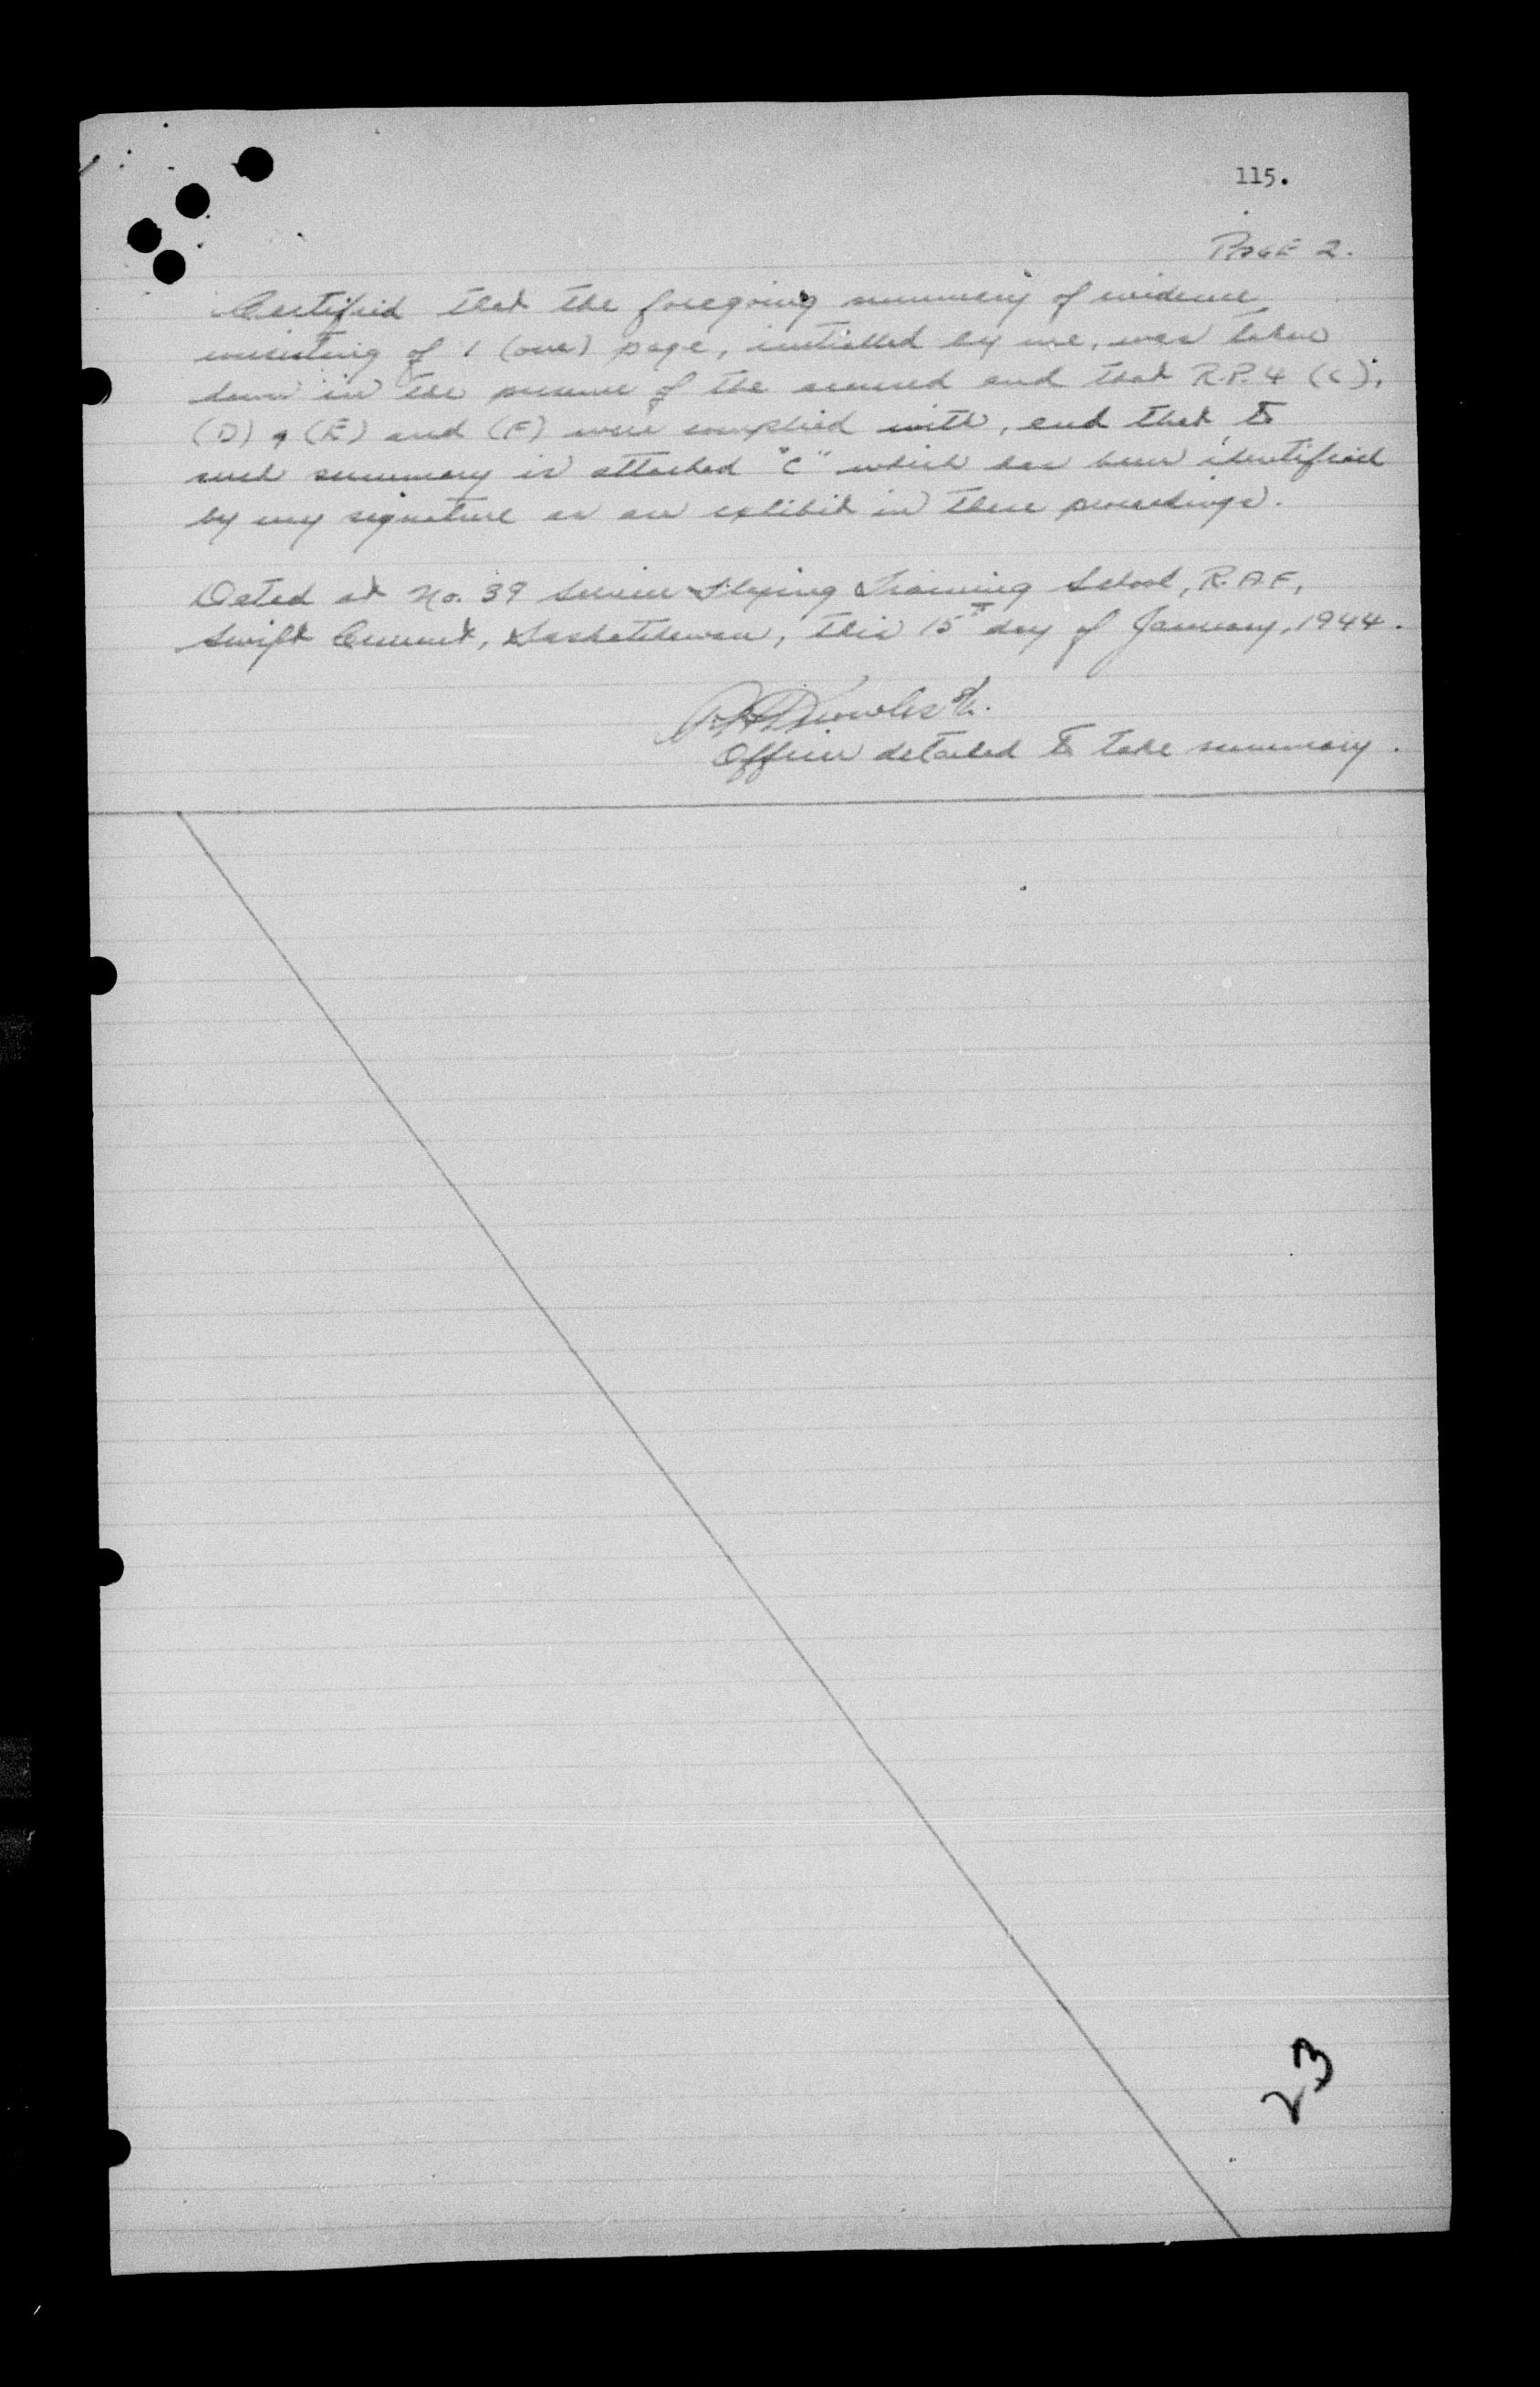 115.
PAGE 2.
Certified that the foregoing summary of evidence
consisting of 1 (one) page, initialled by me, was taken
down in the presence of the accused and that R.P. 4 (C),
(D), (E) and (F) were complied with, and that to
such summary is attached "C" which has been identified
by my signature as an exhibit in these proceedings.
Dated at No. 39 Service Flying Training School, R.A.F.,
Swift Current, Saskatchewan, this 15th day of January, 1944.
Officer detailed to take summary.
23